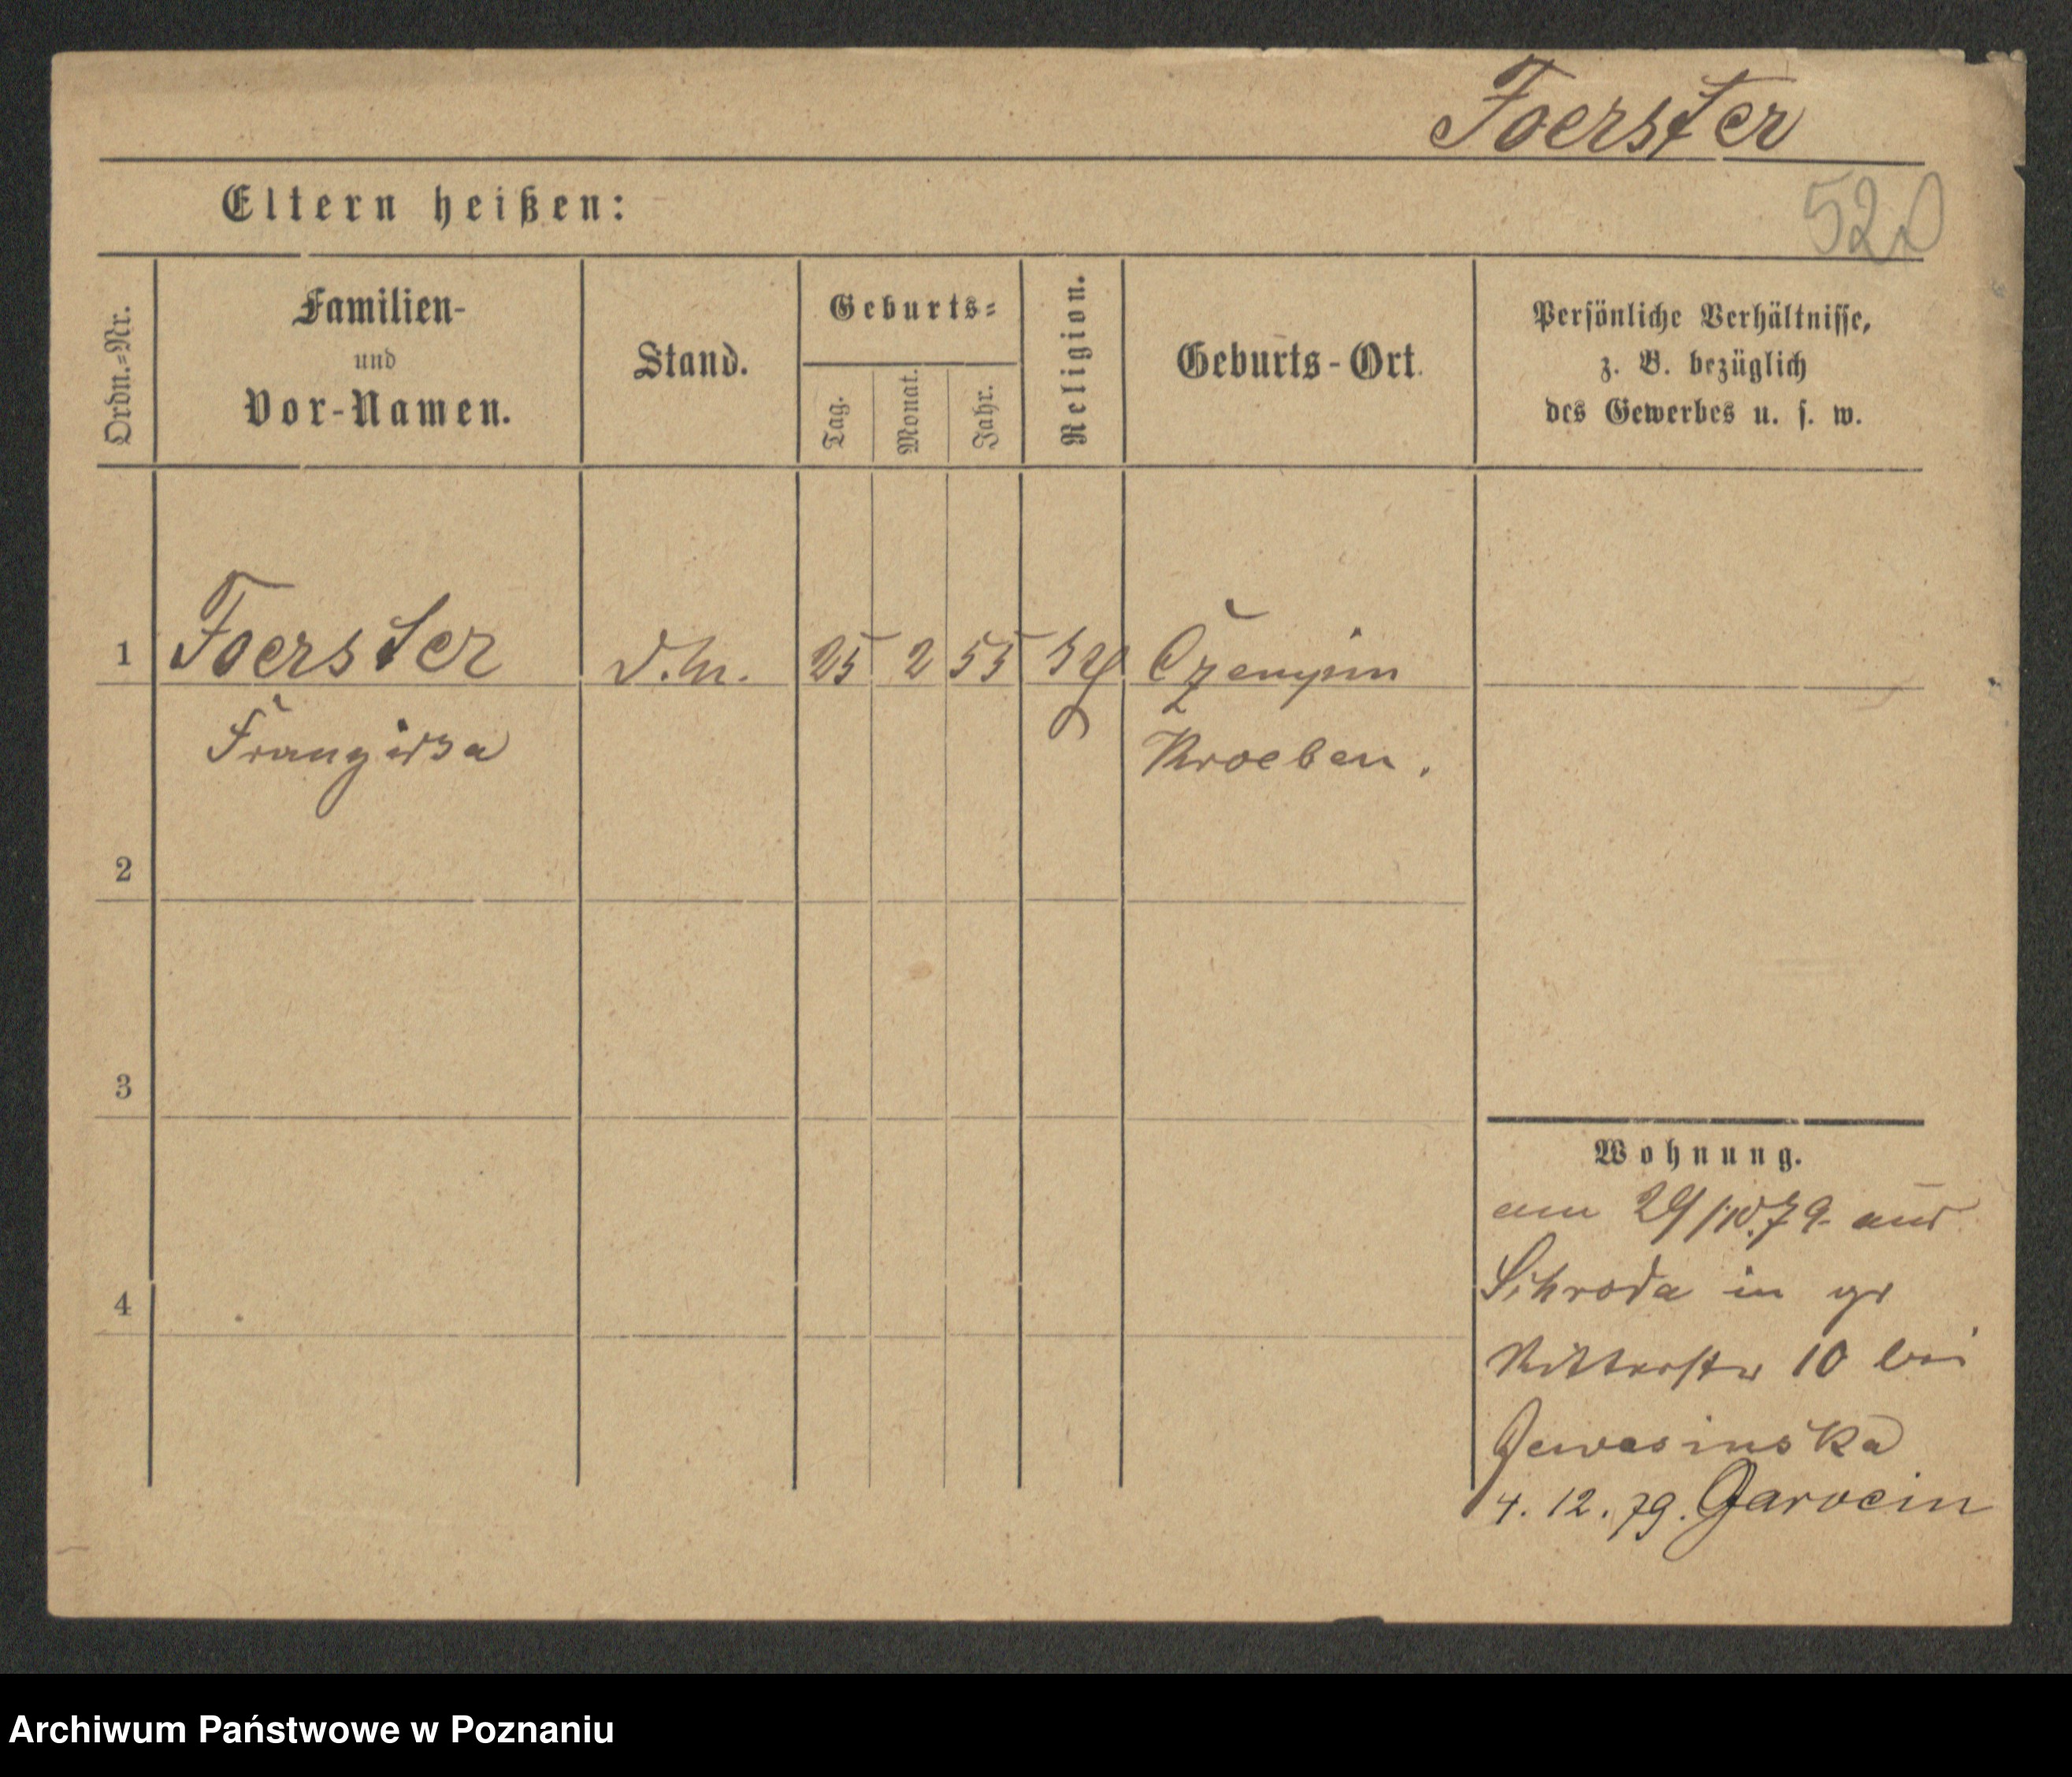 Foerster
520
Eltern heißen:
Ordn.=Nr.
Familien-
und
Vor-Namen.
Stand.
Geburts=
Tag.
Monat.
Jahr.
Religion.
Geburts-Ort.
Persönliche Verhältnisse,
z. B. bezüglich
des Gewerbes u. s. w.
1 Foerster 25 2 55 Czempin
Kroeben.
2
3
4
Wohnung.
am 29/10.79. aus
Schroda in gr
Ritterstr 10 bei
4. 12. 79. Jarocin
Archiwum Państwowe w Poznaniu